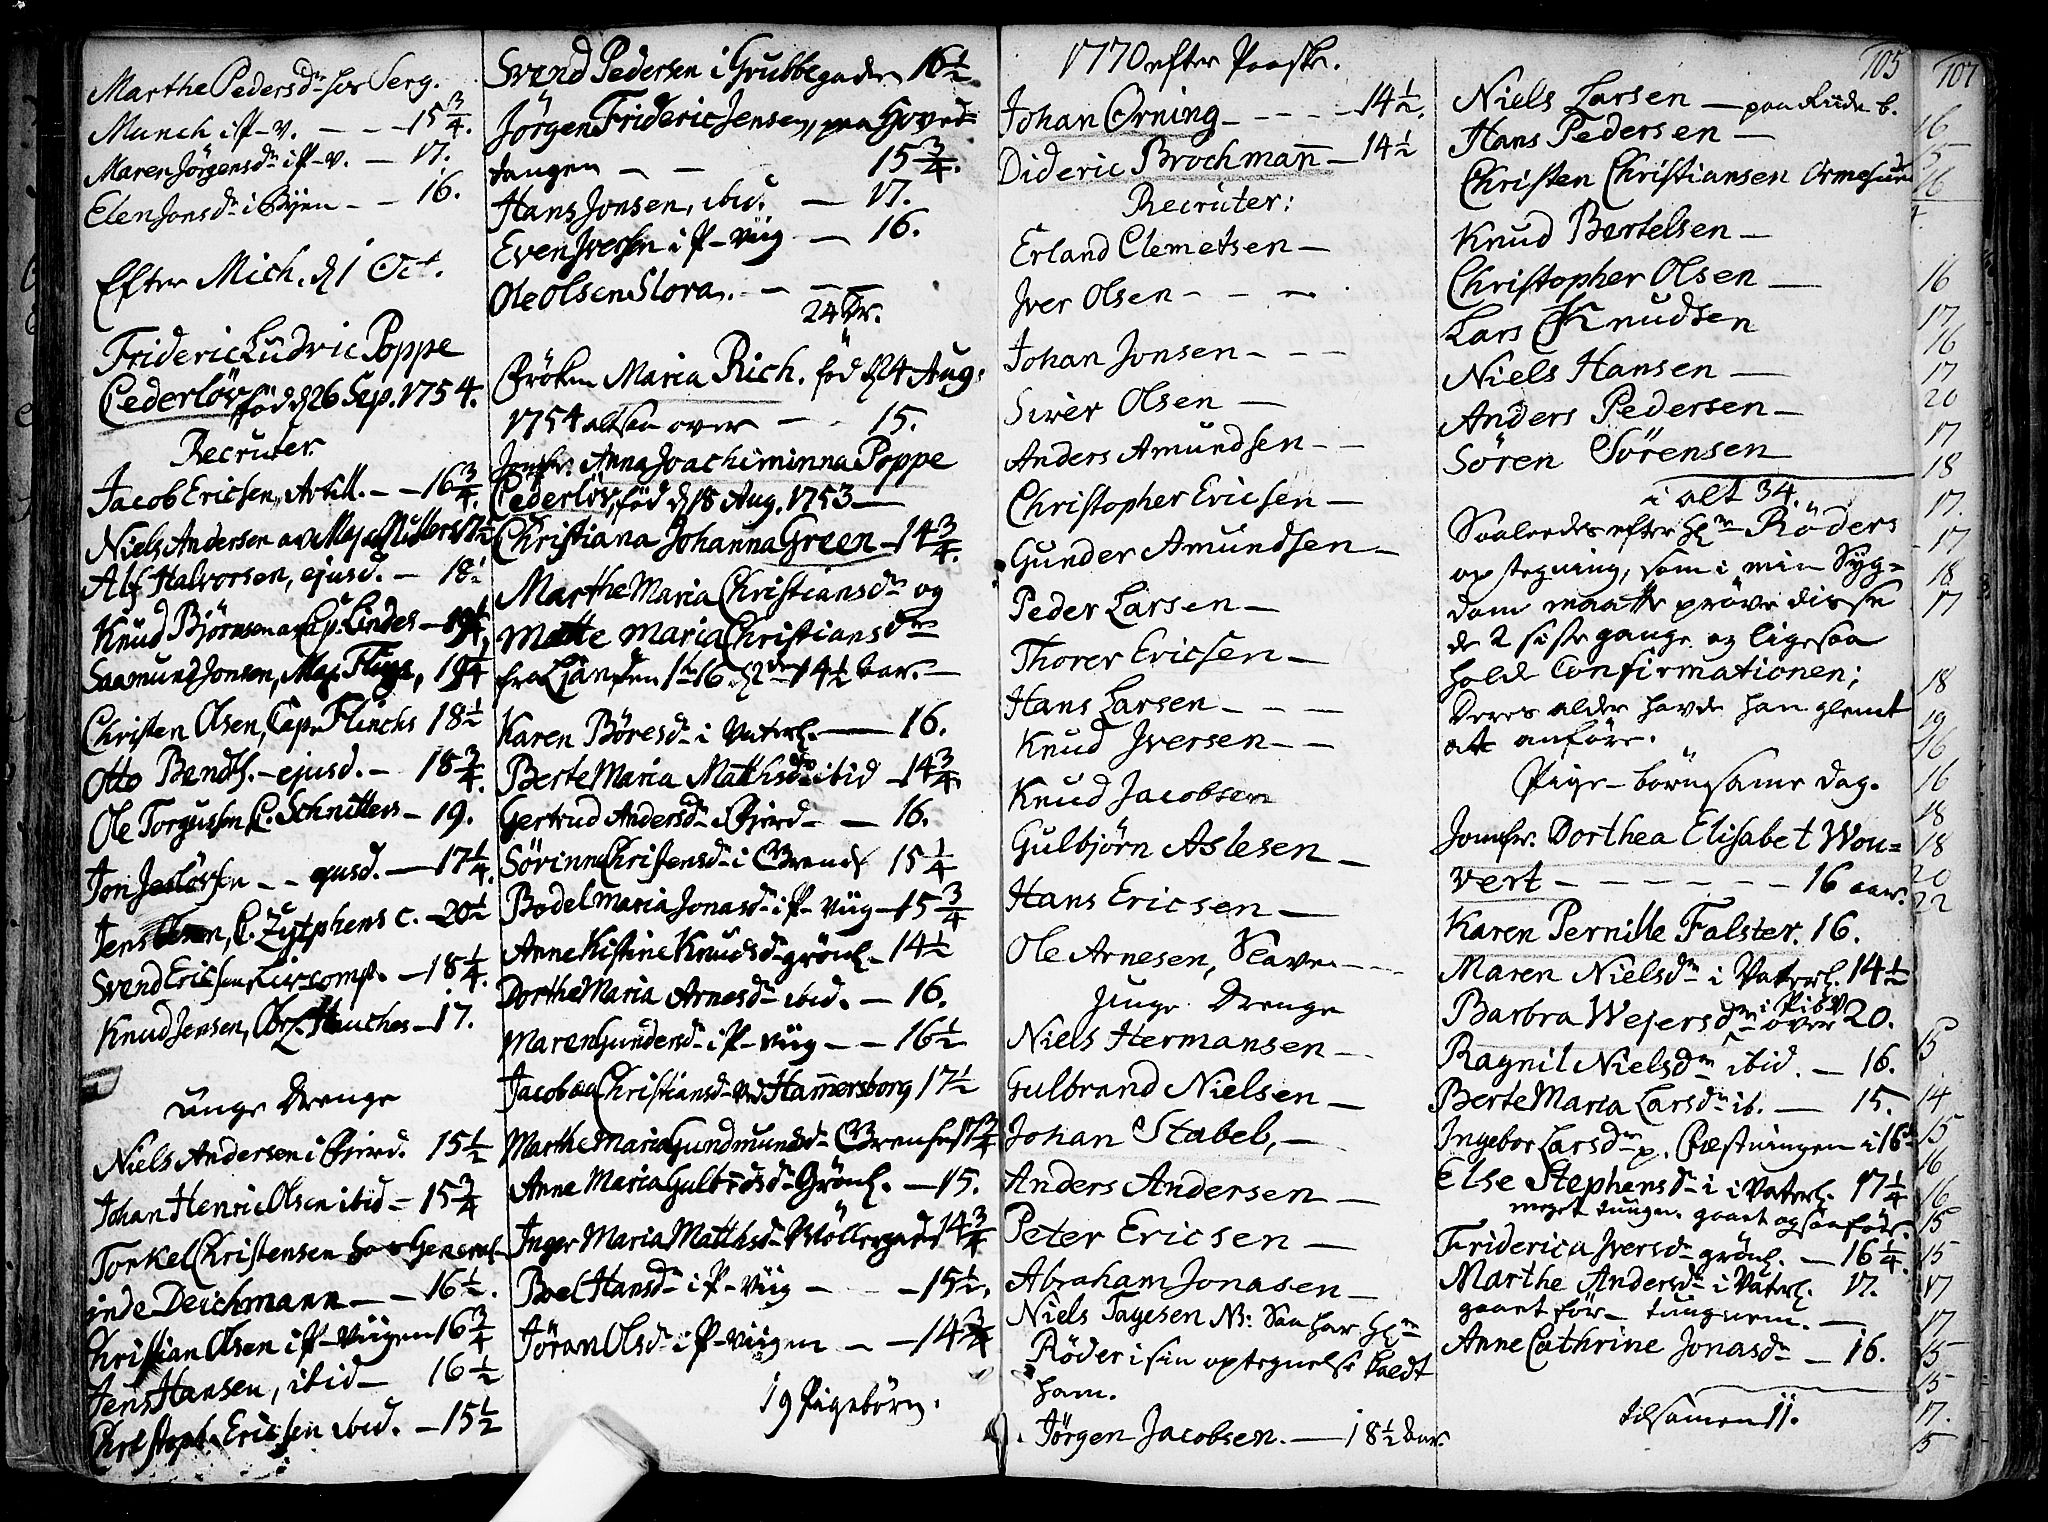 Marthe Pedersd. hos Serg.
Munch i P-v. - - - 15 3/4.
Maren Jörgensd. i P-v. - 17.
Elen Jonsd. i Byen - - 16.
Efter Mich. d. 1 Oct.
Frideric Ludvic Poppe
Cederlöv föd d. 26 Sep. 1754.
Recruter.
Jacob Ericsen, Artill. - - 16 3/4.
Niels Andersen av Maj. Müllers 17 1/2
Alf Halvorsen, ejusd. - 18 1/2
Knud Björnsen av Cap. Lindes - 19 1/4,
Saamund Jonsen, Maj. 19 1/4
Christen Olsen, Cap. Flinchs 18 1/2
Otto Bendts. - ejusd. - 18 3/4.
Ole Torgussen C. Schnitlers - 19.
Jon - - ejusd. - 17 1/4.
Jens Olsen, C. Zytphens c. - 20 1/2
Svend Ericsen Livcomp. - 18 1/4.
Knud Jensen, Obl. Hauches - 17.
unge Drenge
Niels Andersen i Fierd. 15 1/2
Johan Henric Olsen ibid - 15 3/4
Torkel Christensen hos General-
inde Deichmann - - 16 1/2.
Christian Olsen i P-Viigen 16 3/4
Jens Hansen, ibid - 16 1/2
Christoph. Ericsen ibid. - 15 1/2
Svend Pedersen i Grubbegaden 16 1/2
Jörgen Frideric Jensen, paa Hoved-
tangen - - 15 3/4.
Hans Jonsen, ibid. - 17.
Even Iversen i P-Viig - 16.
Ole Olsen Slora. - - -
24 Dr.
Fröken Maria Rich. föd d. 24 Aug.
1754 altsaa over - - 15.
Jomfr. Anna Joachiminna Poppe
Cederlöv, föd d. 18 Aug. 1753 -
Christiana Johanna Green - 14 3/4.
Marthe Maria Christiansd. og
Mette Maria Christiansd.
fra Ljansen 1te 16 d. 2den 14 1/2 aar. -
Karen Böresd. i Vaterl. - 16.
Berte Maria Mathisd. ibid - 14 3/4
Gertrud Andersd. Fierd - - 16.
Sörinne Christensd. i Grend 15 1/4
Bodel Maria Jonasd. i P-Viig - 15 3/4
Anne Kistine Knudsd. grönl. - 14 1/2
Dorthe Maria Arnesd. ibid. - 16.
Maren Gundersd. i P-Viig - - 16 1/2
Jacobaa Christiansd. ved Hamersborg 17 1/2
Marthe Maria Gundmundsd. 17 3/4
Anne Maria Gulbrdsd. Grönl. - 15.
Inger Maria Matthisd. Möllergaden 14 3/4
Boel Hansd. i P-Viig - - 15 1/2.
Jöran Olsd. i P-Viigen - - 14 3/4
19 Pigebörn.
1770 efter Paaske.
Johan Örning - - - - 14 1/2.
Dideric Brochmann - 14 1/2
Recruter:
Erland Clemetsen -
Iver Olsen - - -
Johan Jonsen - - -
Siver Olsen -
Anders Amundsen - -
Christopher Ericsen -
Gunder Amundsen -
Peder Larsen -
Thorer Ericsen -
Hans Larsen - - -
Knud Iversen - -
Knud Jacobsen
Gulbjörn Aslesen -
Hans Ericsen -
Ole Arnesen, Slave - -
Junge Drenge
Niels Hermansen - -
Gulbrand Nielsen -
Johan Stabel, -
Anders Andersen -
Peter Ericsen -
Abraham Jonasen -
Niels Tagesen NB: Saa har Hr.
Röder i sin optegnelse kaldt
ham.
Jörgen Jacobsen. - 18 1/2 aar.
105
Niels Larsen - paa Riide b.
Hans Pedersen -
Christen Christiansen Ormesund
Knud Bertelsen -
Christopher Olsen -
Lars Knudsen
Niels Hansen -
Anders Pedersen -
Sören Sörensen
i alt 34.
Saaledes efter Hr. Röders
optegning, som i min Syg-
dom maatte pröve disse
de 2 siste gange og ligesaa
holde Confirmationen;
Deres alder havde han glemt
att anföre.
Pige-börn samme dag.
Jomfr. Dorthea Elisabet Wou-
vert - - - - - - 16 aar.
Karen Pernille Falster. 16.
Maren Nielsd. i Vaterl. 14 1/2
Barbra Wejersd. i Pibv over 20.
Ragnil Nielsd. ibid. - 16.
Berte Maria Larsd. ib. - 15.
Ingebor Larsd. p. Fæstningen i 16 1/2
Else Stephensd. i Vaterl. 17 1/4
meget tungn. gaaet ogsaa för.
Friderica Iversd. grönl. - 16 1/4.
Marthe Andersd. i Vaterl. 17.
gaaet för - tungnem. -
Anne Cathrine Jonasd. - 16.
tilsamen 11.
107
16
15
16
16
17
16
17
20
17
18
17.
17
18
17
18
19
16
16
18
18
20
22
15
14
15
16
16
15
15
17
17
15
15
17.
15